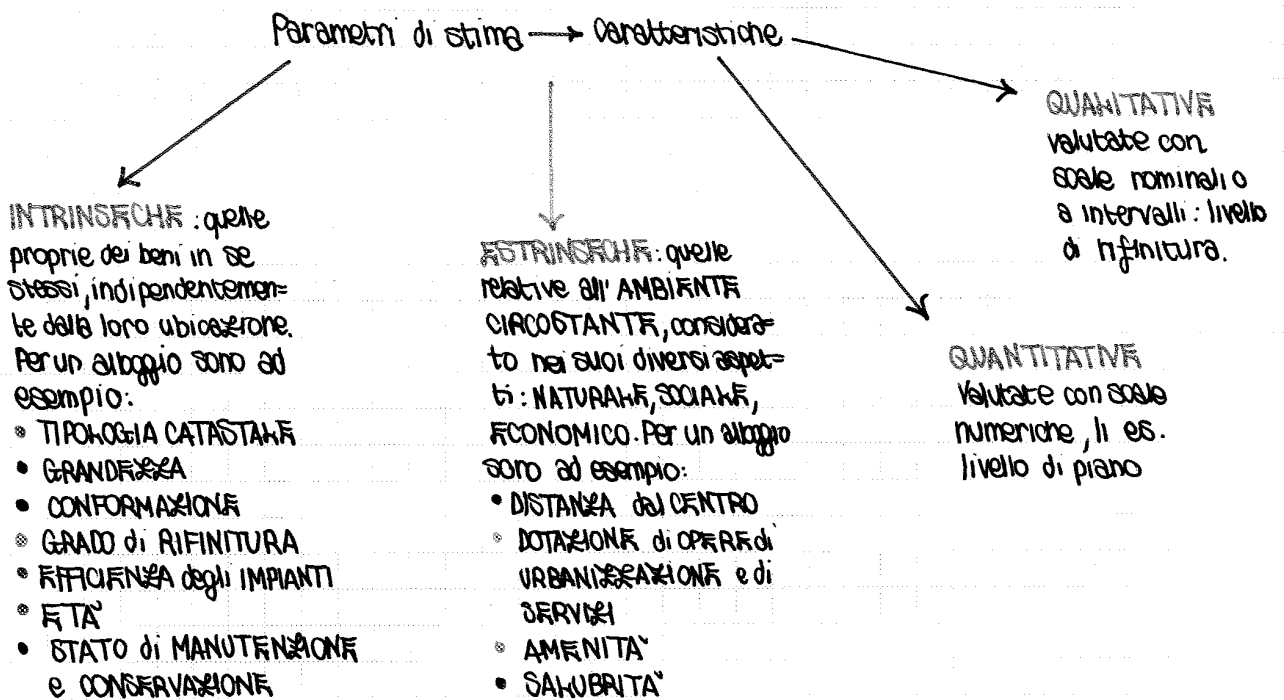 Parametri di stima → Caratteristiche
INTRINSECHE: quelle
proprie dei beni in se
stessi, indipendentemen=
te dalla loro ubicazione.
Per un alloggio sono ad
esempio:
• TIPOLOGIA CATASTALE
• GRANDEZZA
• CONFORMAZIONE
• GRADO di RIFINITURA
• EFFICIENZA degli IMPIANTI
• ETA'
• STATO di MANUTENZIONE
e CONSERVAZIONE
ESTRINSECHE: quelle
relative all'AMBIENTE
CIRCOSTANTE, considera=
to nei suoi diversi aspet=
ti: NATURALE, SOCIALE,
ECONOMICO. Per un alloggio
sono ad esempio:
• DISTANZA dal CENTRO
• DOTAZIONE di OPERE di
URBANIZZAZIONE e di
SERVIZI
• AMENITA'
• SALUBRITA'
QUALITATIVE
valutate con
scale nominali o
a intervalli: livello
di rifinitura.
QUANTITATIVE
Valutate con scale
numeriche, li es.
livello di piano